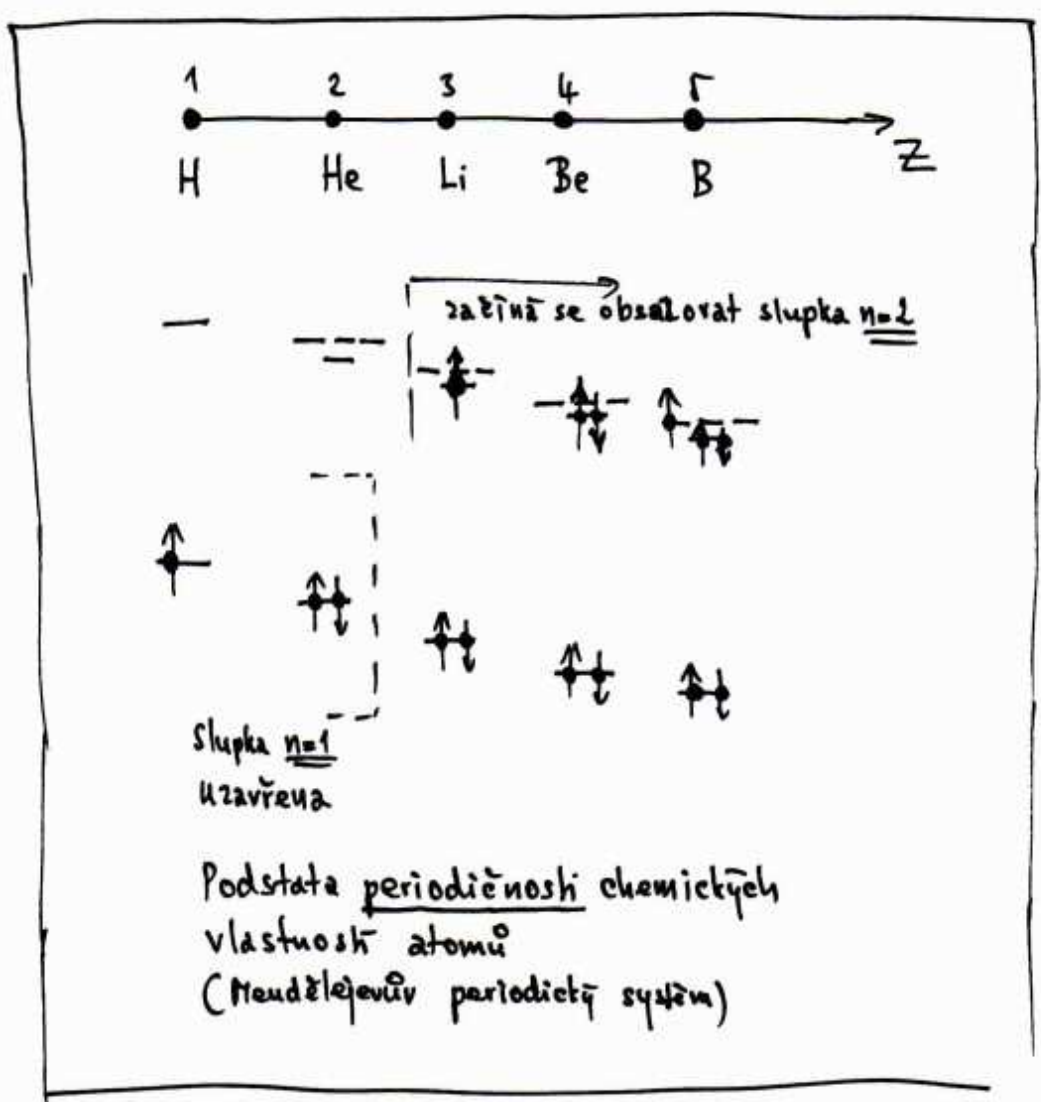 1 2 3 4 5
Z
H He Li Be B
začíná se obsazovat slupka n=2
Slupka n=1
uzavřena
Podstata periodičnosti chemických
vlastností atomů
(Mendělejevův periodický systém)